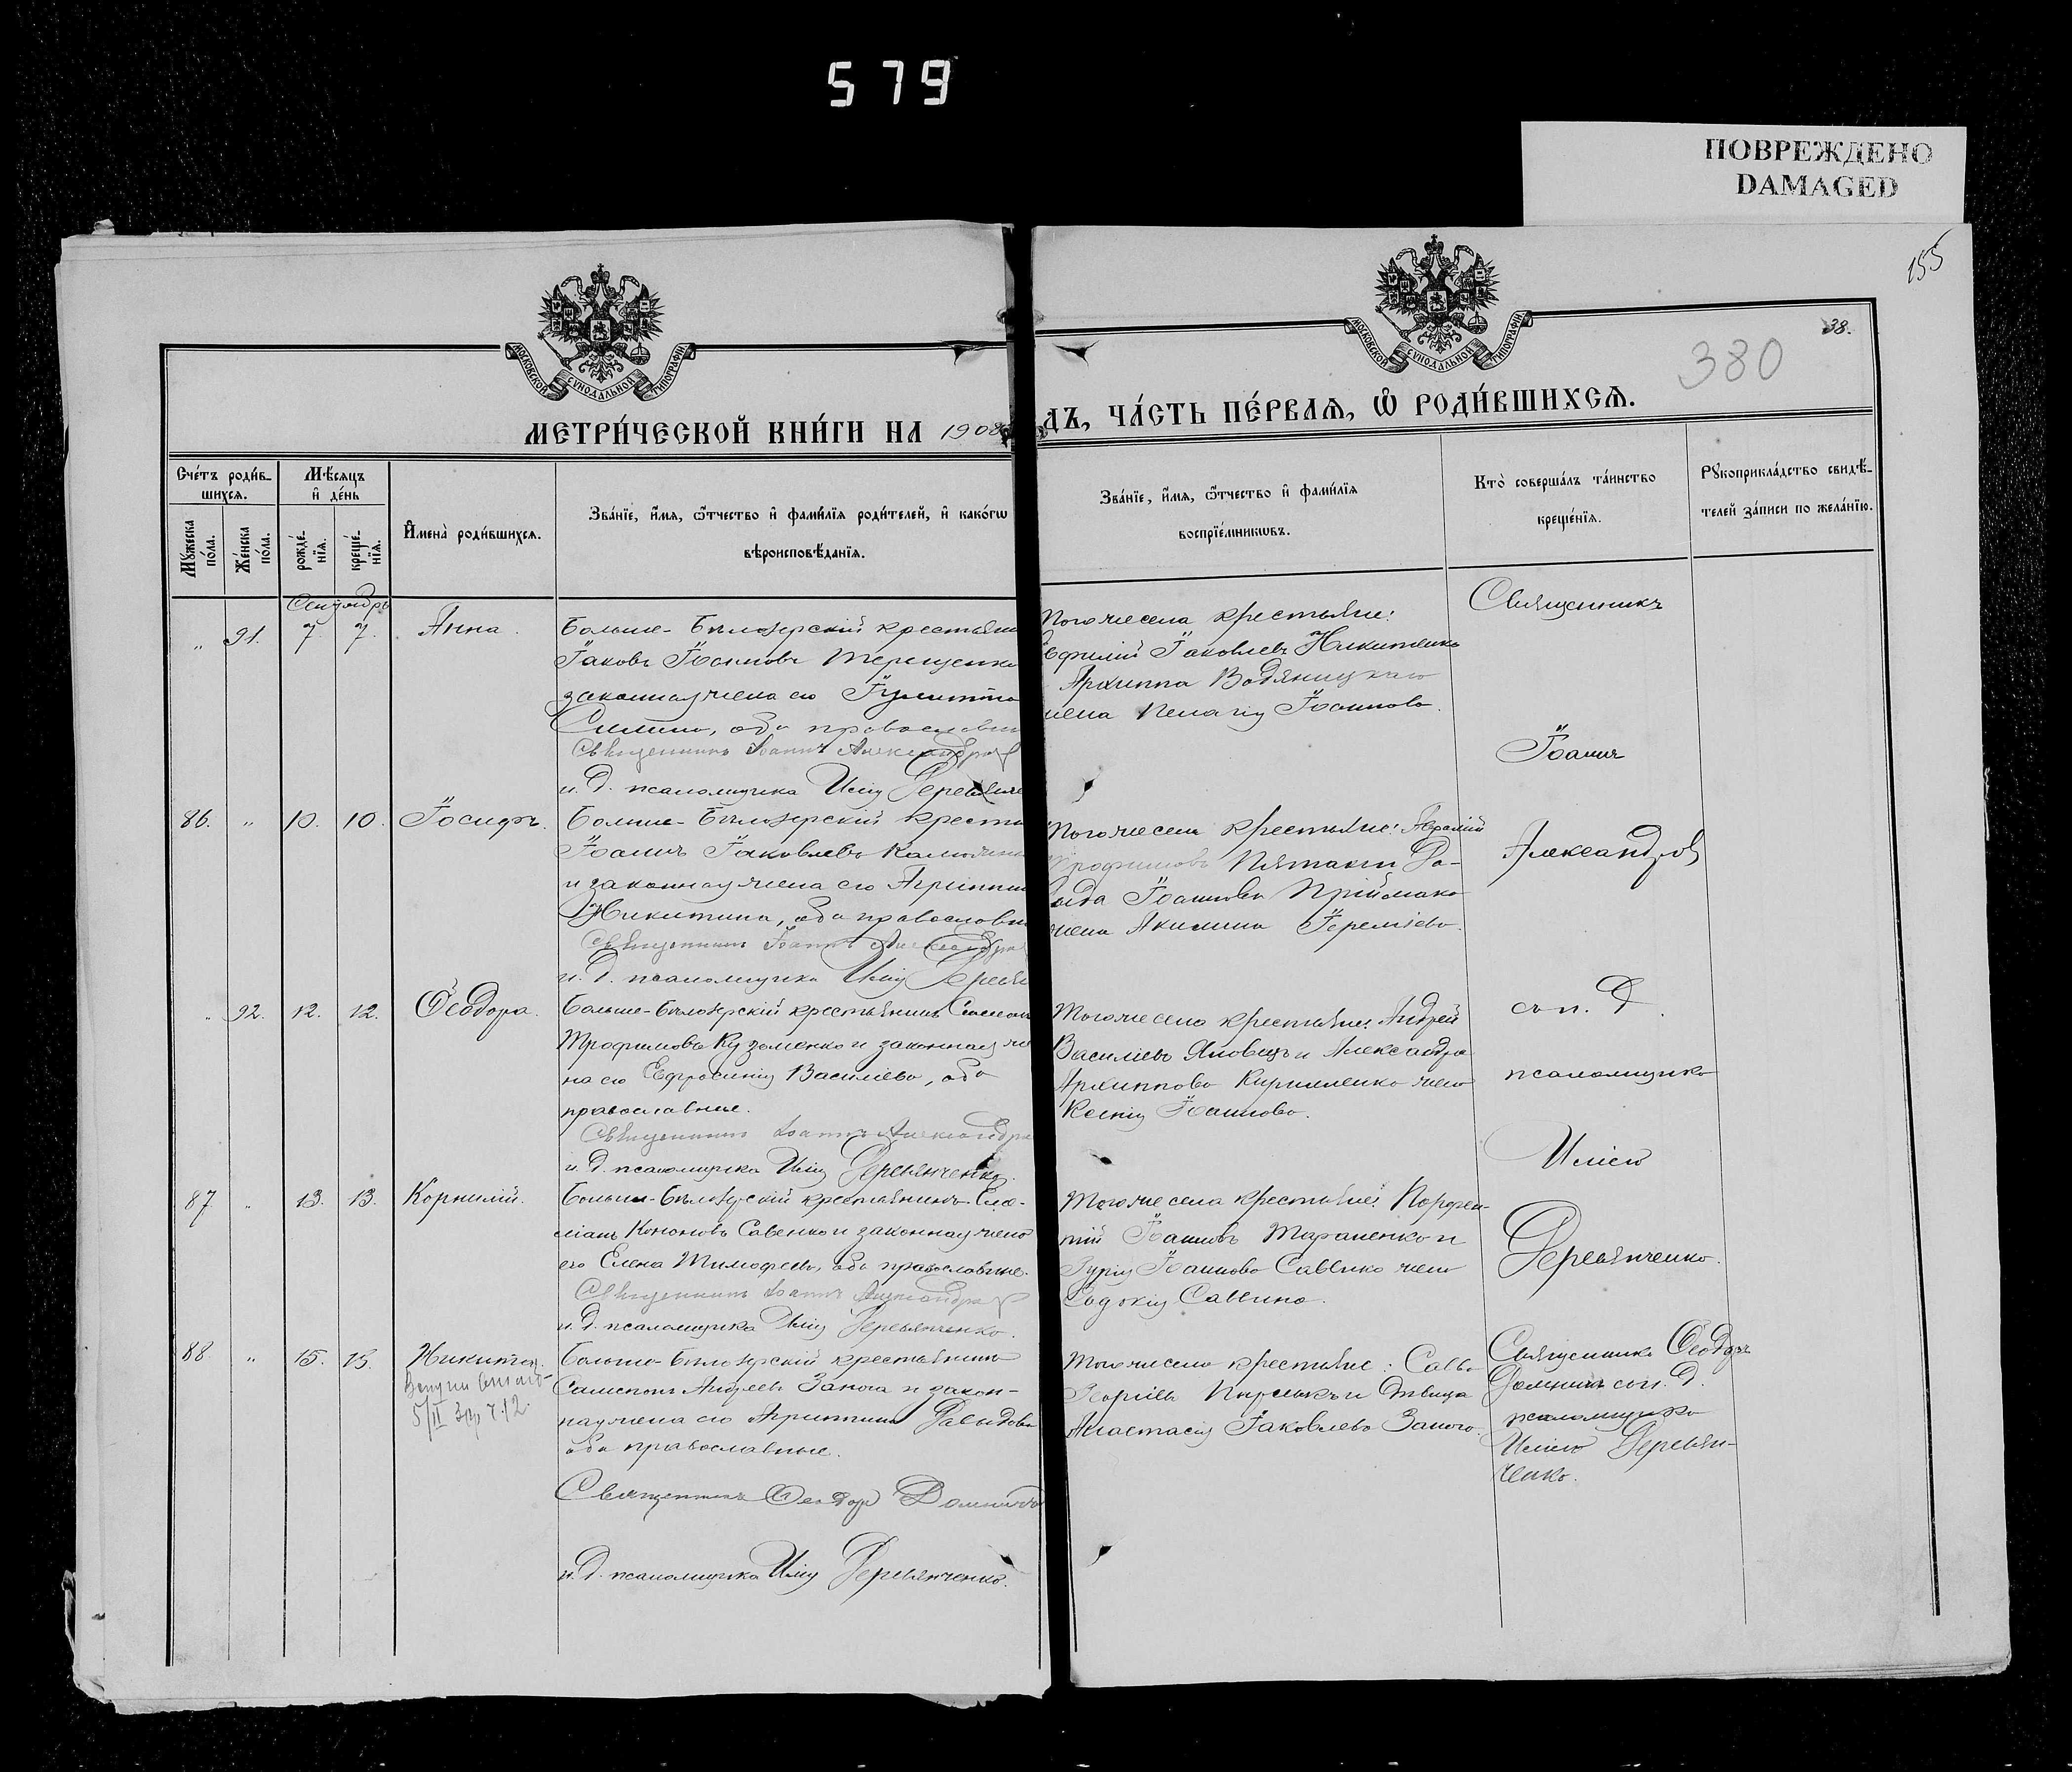 579
ПОВРЕЖДЕНО
DAMAGED
155
38.
380
МОСКОВСКОЙ СѴНОДАЛЬНОЙ ТИПОГРАФІИ
МОСКОВСКОЙ СѴНОДАЛЬНОЙ ТИПОГРАФІИ
МЕТРИ́ЧЕСКОЙ КНИ́ГИ НА 1908
ДЪ, ЧА́СТЬ ПЕ́РВАѦ, Ѿ РОДИ́ВШИХСѦ.
Сче́тъ роди́в-
шихсѧ.
Мѣ́сѧцъ
и҆ де́нь
Мꙋ́жеска
по́ла.
Же́нска
по́ла.
рожде́-
нїѧ.
креще́-
нїѧ.
И҆мена̀ роди́вшихсѧ.
Зва́нїе, и҆́мѧ, ѻ҆́тчество и҆ фами́лїѧ роди́телей, и҆ како́гѡ
вѣроисповѣ́данїѧ.
Зва́нїе, и҆́мѧ, ѻ҆́тчество и҆ фами́лїѧ
воспрїе́мникѡвъ.
Кто̀ соверша́лъ та́инство
креще́нїѧ.
Рꙋкоприкла́дство свидѣ́-
телей за́писи по жела́нїю.
Сентябрь
" 91. 7 7. Анна.
Больше-Бѣлозерскій крестьяни
Іаковъ
законная жена его Іулитта
оба православн
Священникъ Іоаннъ Александров
и. д. псаломщика Илія Деревянче
Того же села крестьяне:
Ефимій Іаковлевъ Никитенко
Архиппа Водяницкаго
жена Пелагія Іоаннова.
Священникъ
Іоаннъ
86. " 10. 10. Іосифъ.
Больше-Бѣлозерскій крестья
Іоаннъ Іаковлевъ
и законная жена его Агриппин
Никитина, оба православн
Священникъ Іоаннъ Александров
и. д. псаломщика Илія Деревян
Того же села крестьяне:
Трофимовъ Да-
вида Іоаннова Пріймака
жена Акилина Іереміева.
Александровъ
" 92. 12. 12. Ѳеодора.
Больше-Бѣлозерскій крестьянинъ
Трофимовъ Кузьменко и законная же
на его Евфросинія Василіева, оба
православные.
Священникъ Іоаннъ Александров
и. д. псаломщика Илія Деревянченко.
Того же села крестьяне: Андрей
Василіевъ Яловецъ и Александра
Архиппова Кирилленко жена
Ксенія Іоаннова.
съ и. д.
псаломщика
Иліею
87. " 13. 13. Корнилій.
Больше-Бѣлозерскій крестьянинъ
Кононовъ Савенко и законная жена
его Елена Тимофеева, оба православные.
Священникъ Іоаннъ Александров
и. д. псаломщика Илія Деревянченко.
Того же села крестьяне: Порфи-
рій Іоанновъ Тараненко и
Гурія Іоаннова Савенко жена
Евдокія Саввина.
Деревянченко.
88 " 15. 15. Никита.
5/II 7.12.
Больше-Бѣлозерскій крестьянинъ
Андреевъ Занога и закон-
ная жена его Агриппина Давидова
оба православные.
Священникъ Ѳеодоръ
и. д. псаломщика Илія Деревянченко.
Того же села крестьяне: Савва
Георгіевъ и Дѣвица
Анастасія Іаковлева Занога.
Священникъ Ѳеодоръ
съ и. д.
псаломщика
Иліею Деревян-
ченко.